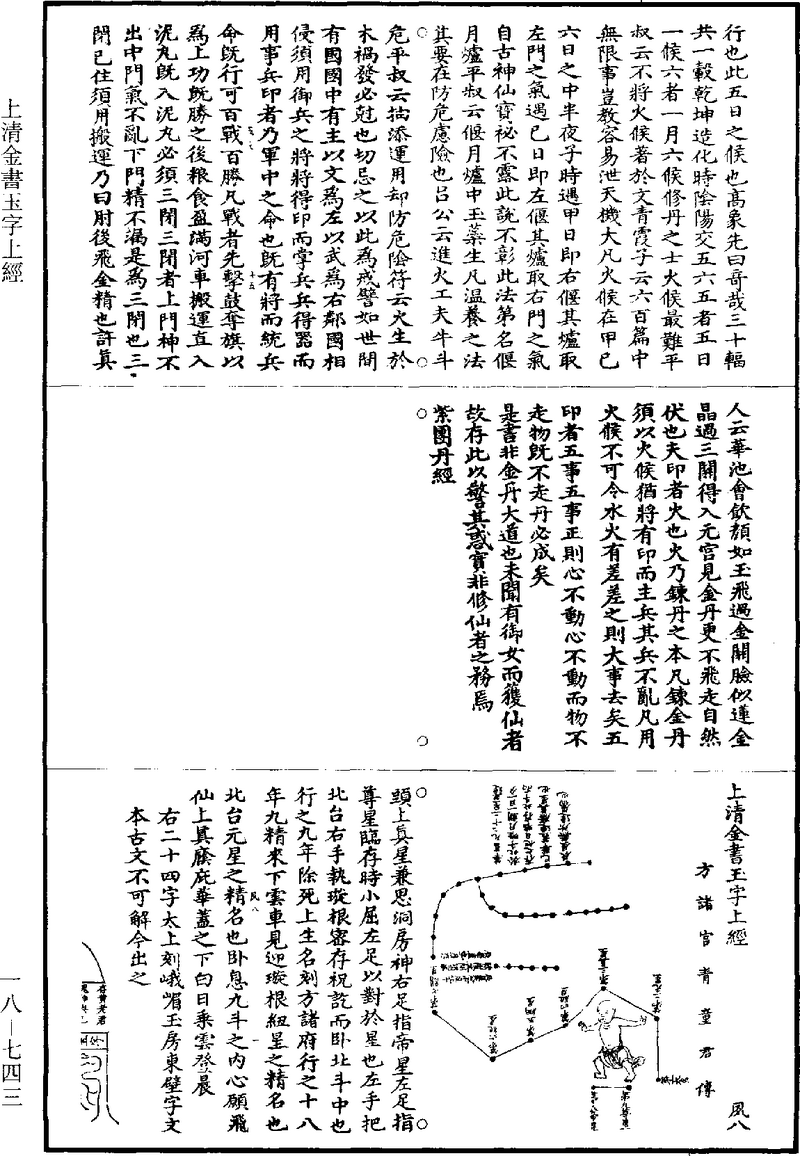 行也此五日之候也高象先曰奇哉三十輻
共一轂乾坤造化時陰陽交五六五者五日
一候六者一月六候修丹之士火候最難平
叔云不將火候著於文青霞子云六百篇中
無限事豈教容易泄天機大凡火候在甲巳
六日之中半夜子時遇甲日卽右偃其爐取
左門之氣遇巳日卽左偃其爐取右門之氣
自古神仙寶祕不露此說不彰此法第名偃
月爐平叔云偃月爐中玉蘂生凡溫養之法
其要在防危慮險也呂公云進火工夫牛斗
危平叔云抽添運用却防危險符云火生於
木禍發必尅也切忌之以此爲戒譬如世間
有國國中有主以文爲左以武爲右鄰國相
侵須用御兵之將將得印而掌兵兵得器而
用事兵印者乃軍中之命也旣有將而統兵
命旣行可百戰百勝凡戰者先擊鼓奪旗以
爲上功旣勝之後粮食盈滿河車搬運直入
泥丸旣入泥丸必須三閉三閉者上門神不
出中門氣不亂下門精不漏是爲三閉也三
閉已住須用搬運乃曰肘後飛金精也許眞
人云華池會飲顏如玉飛過金關臉似蓮金
晶過三關得入元宮見金丹更不飛走自然
伏也夫印者火也火乃鍊丹之本凡鍊金丹
須以火候猶將有印而主兵其兵不亂凡用
火候不可令水火有差差之則大事去矣五
印者五事五事正則心不動心不動而物不
走物旣不走丹必成矣
是書非金丹大道也未聞有御女而獲仙者
故存此以警其惑實非修仙者之務焉
紫團丹經
上清金書玉字上經
方諸宮青童君傳
風八
頭上眞星兼思洞房神右足指帝星左足指
尊星臨存時小屈左足以對於星也左手把
北台右手執璇根審存祝訖而卧北斗中也
行之九年除死上生名刻方諸府行之十八
年九精來下雲車見迎璇根紐星之精名也
北台元星之精名也卧息九斗之內心願飛
仙上眞廕庇華蓋之下白日乘雲登晨
右二十四字太上刻峨嵋玉房東壁字文
本古文不可解今出之
上清金書玉字上經
一八—七四三